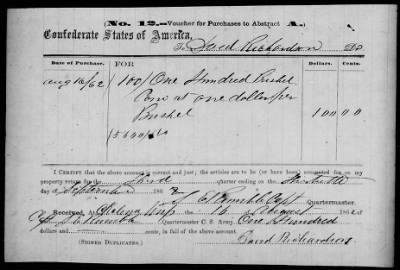 (No. 12.—Voucher for Purchases to Abstract A.)
Confederate States of America,
To David Richardson Dr.
Date of Purchase. FOR Dollars. Cents.
Aug 16/62 (100) One Hundred Bushel
Corn at one dollar per
Bushel 100 00
5600 lbs
I CERTIFY that the above account is correct and just; the articles are to be (or have been) accounted for on my
property return for the Third quarter ending on the Thirtieth
day of September 1862
Capt Quartermaster.
Received, At Camp the 16 of August 1862 of
Quartermaster C. S. Army, One Hundred
dollars and cents, in full of the above account.
(SIGNED DUPLICATES.) David Richardson